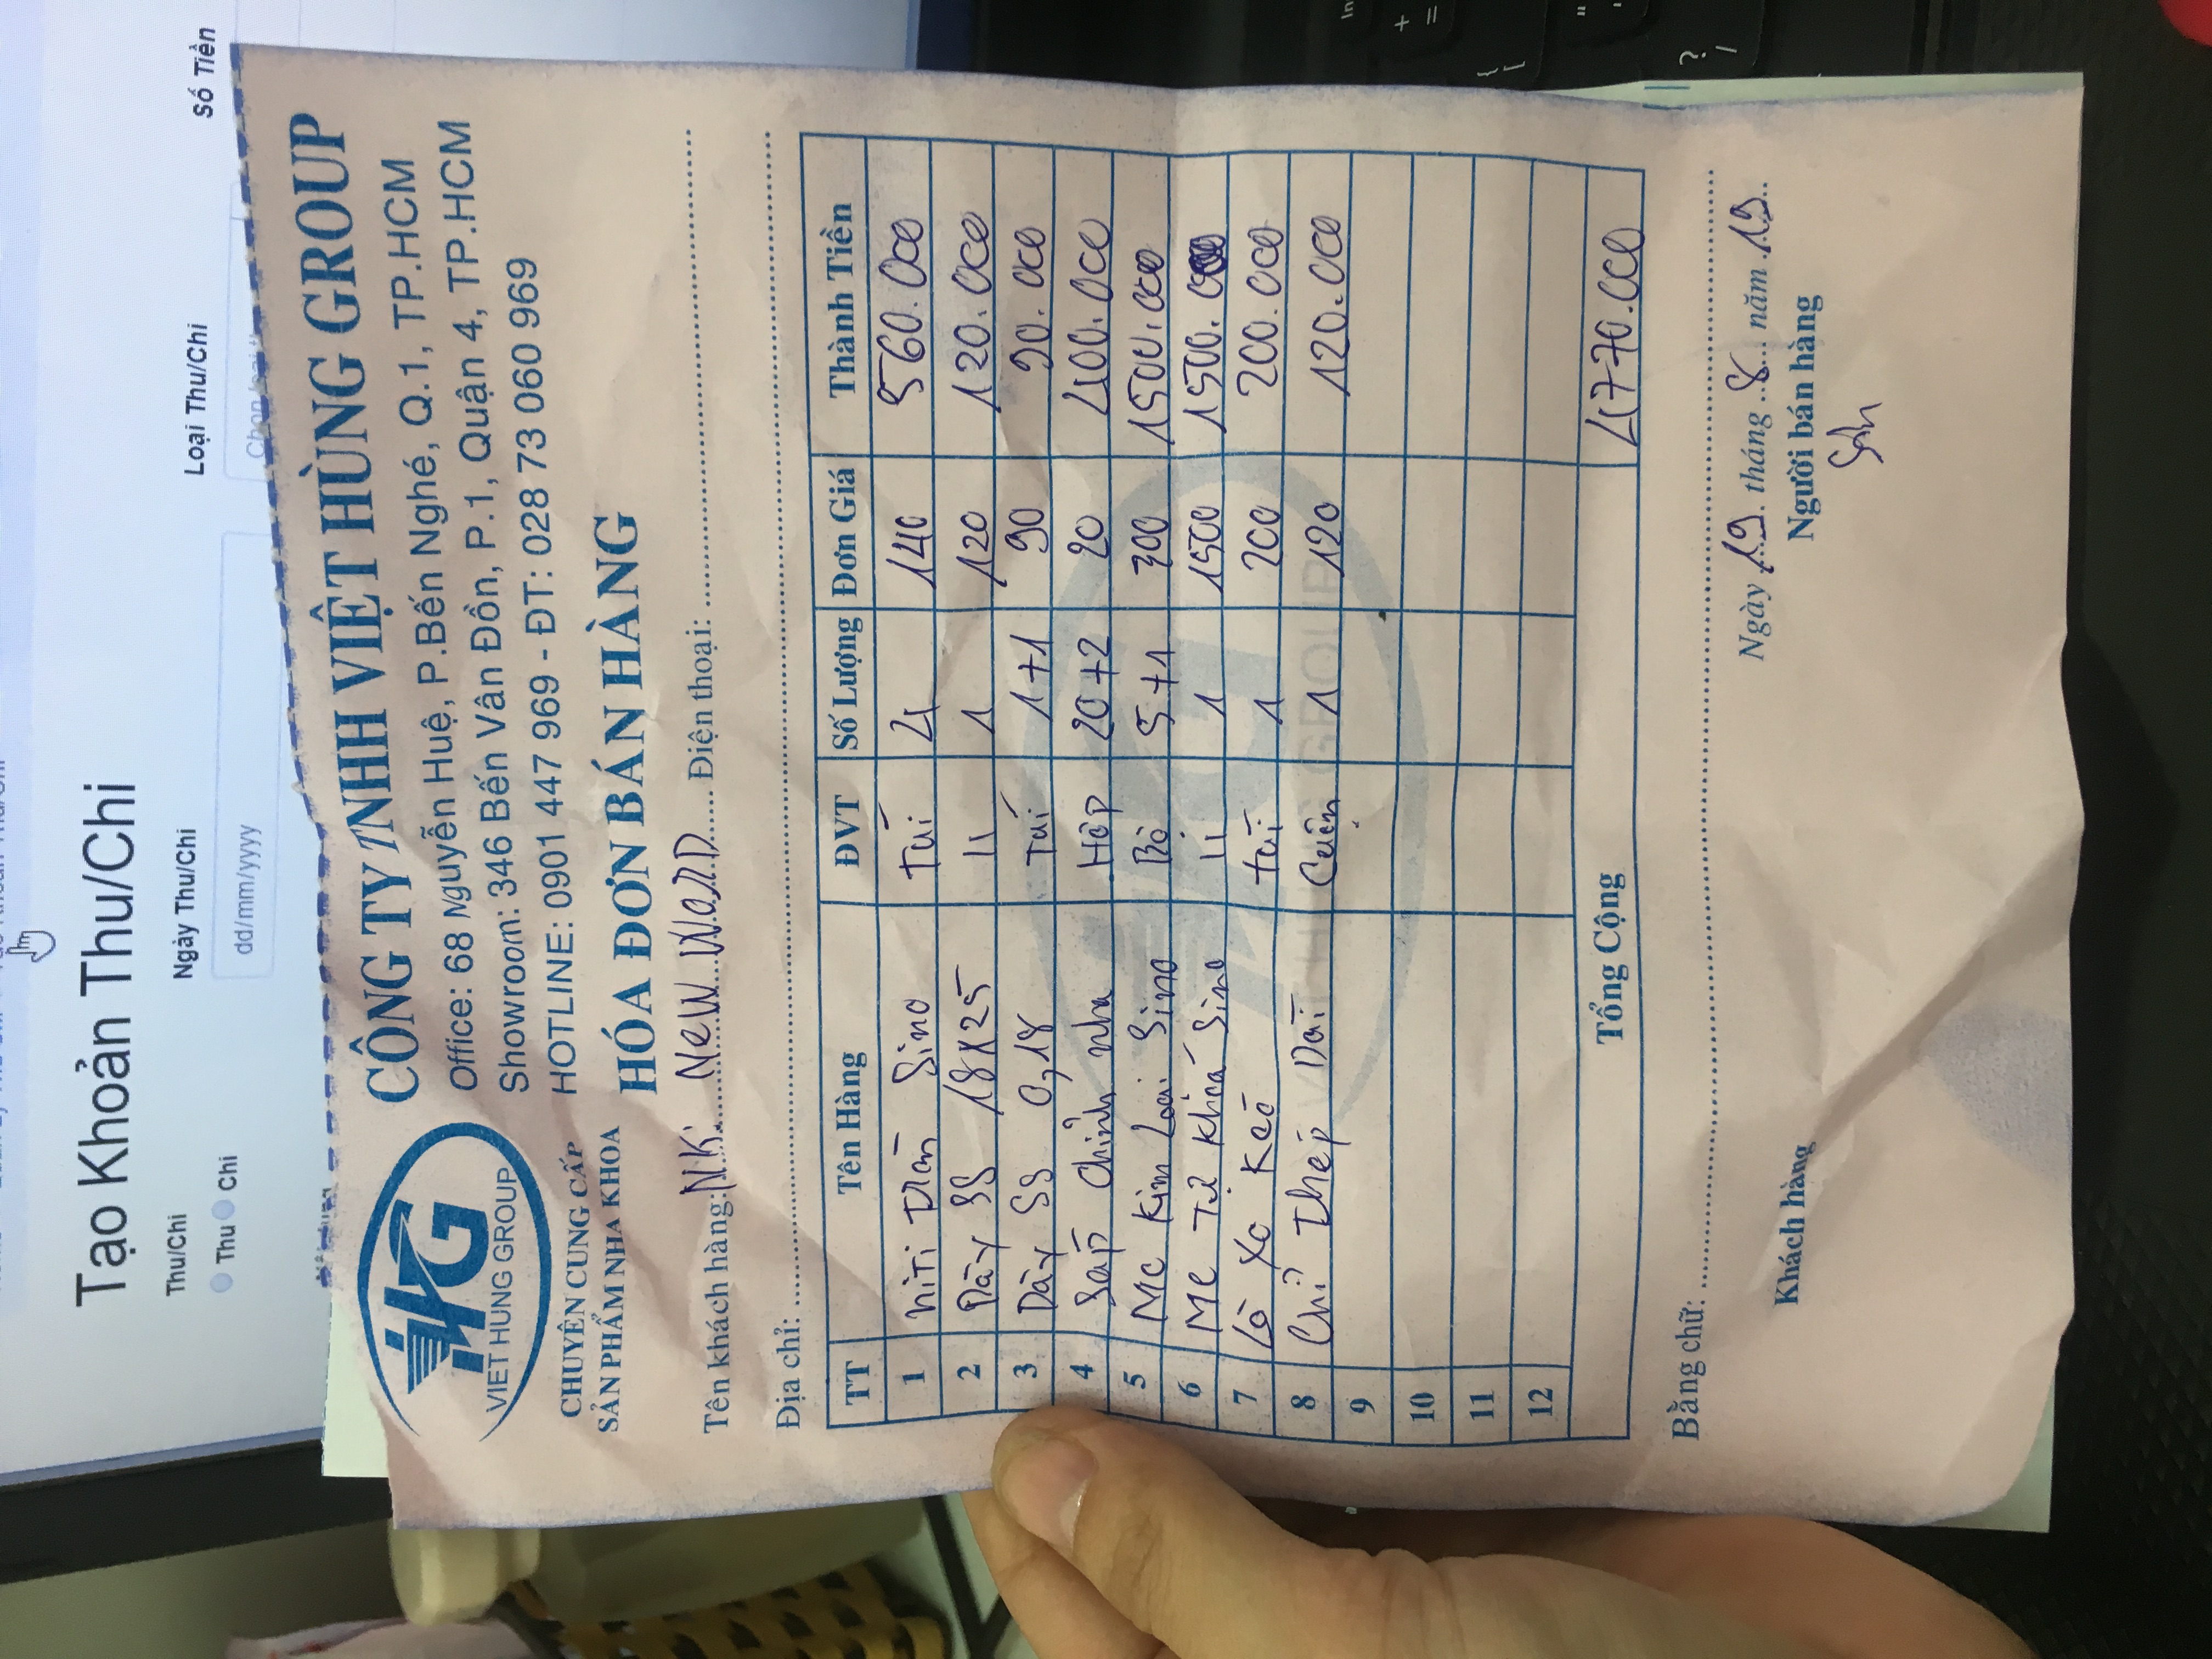 Tạo Khoản Thu/Chi
Thu/Chi
Ngày Thu/Chi
Loại Thu/Chi
Số Tiền
Thu Chi
dd/mm/yyyy
CÔNG TY TNHH VIỆT HÙNG GROUP
Office: 68 Nguyễn Huệ, P.Bến Nghé, Q.1, TP.HCM
Showroom: 346 Bến Vân Đồn, P.1, Quận 4, TP.HCM
HOTLINE: 0901 447 969 - ĐT: 028 73 060 969
HG
VIET HUNG GROUP
CHUYÊN CUNG CẤP
SẢN PHẨM NHA KHOA
HÓA ĐƠN BÁN HÀNG
Tên khách hàng: NK: NeW WORD Điện thoại:
Địa chỉ:
TT Tên Hàng ĐVT Số Lượng Đơn Giá Thành Tiền
1 NiTi Trên Sino Túi 4 140 560.000
2 Dây SS 18x25 11 1 120 120.000
3 Dây SS 0,18 Túi 1+1 90 90.000
4 Sáp Chỉnh nha Hộp 20+2 20 400.000
5 MC Kim Loại Sino Bộ 5+1 300 1500.000
6 MC Tự Khoá Sino 11 1 1500 1500.000
7 Lò Xo Kéo túi 1 200 200.000
8 Chỉ Thép Dài Cuộn 1 120 120.000
9
10
11
12
Tổng Cộng 4770.000
Bằng chữ:
Ngày 19 tháng 8 năm 19
Khách hàng Người bán hàng